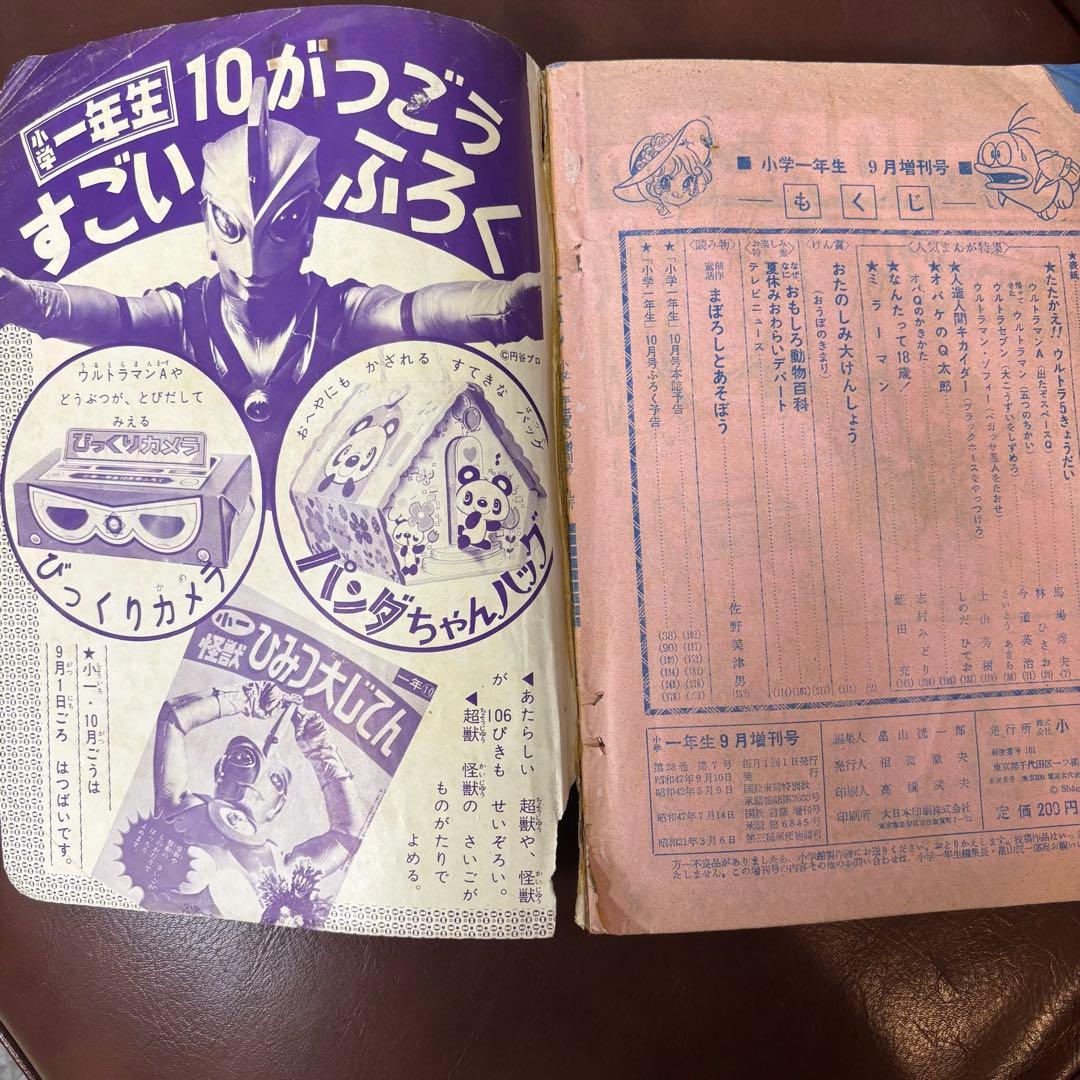 小学一年生 10がつごう
すごい ふろく
©円谷プロ
ウルトラマンAや
どうぶつが、とびだして
みえる
びっくりカメラ
小学一年生10月号ふろく
びっくりカメラ
おへやにも かざれる すてきな バッグ
パンダちゃんバッグ
小一
怪獣 ひみつ大じてん
一年⑩
◀あたらしい 超獣や、怪獣
が 106ぴきも せいぞろい。
◀超獣 怪獣の さいごが
ものがたりで
よめる。
★小一・10月ごうは
9月1日ごろ はつばいです。
■ 小学一年生 9月増刊号 ■
もくじ
★表紙
〈人気まんが特集〉
★たたかえ!! ウルトラ5きょうだい
ウルトラマンA(出たぞスペースQ)
帰ってきた ウルトラマン(五つのちかい)
ウルトラセブン(大こうずいをしずめろ)
ウルトラマン・ゾフィー(ペガッサ星人をたおせ)
★人造人間キカイダー(ブラックホースをやっつけろ)
★オバケのQ太郎
オバQのかきかた
★なんたって18歳!
★ミラーマン
馬場秀夫
林ひさお
今道英治
さいとうあきら
土山芳樹
しのだひでお
志村みどり
蛭田充
〈けん賞〉
おたのしみ大けんしょう
(おうぼのきまり)
〈お楽しみ特集〉
なぜなに おもしろ動物百科
夏休みおわらいデパート
テレビニュース
〈読み物〉
創作童話 まぼろしとあそぼう
佐野美津男
★「小学一年生」10月号本誌予告
★「小学一年生」10月号ふろく予告
小学一年生9月増刊号
第28巻 第7号 毎月1回1日発行
昭和47年9月10日 発行
昭和42年5月9日 国鉄東局特別扱承認雑誌第2603号
昭和47年7月14日 国鉄 首都 増刊号承認 第6845号
昭和21年3月6日 第三種郵便物認可
編集人 畠山滉一郎
発行人 相賀徹夫
印刷人 高橋武夫
印刷所 大日本印刷株式会社
東京都新宿区市谷加賀町1-12
発行所 株式会社 小
郵便番号 101
東京都千代田区一ツ橋
定価 200円
万一不良品がありましたら、小学館製作部にお送りください。おとりかえします。投稿作品はいっ
たしません。この増刊号の内容その他のお問い合わせは、小学一年生編集長・畠山滉一郎宛お願い